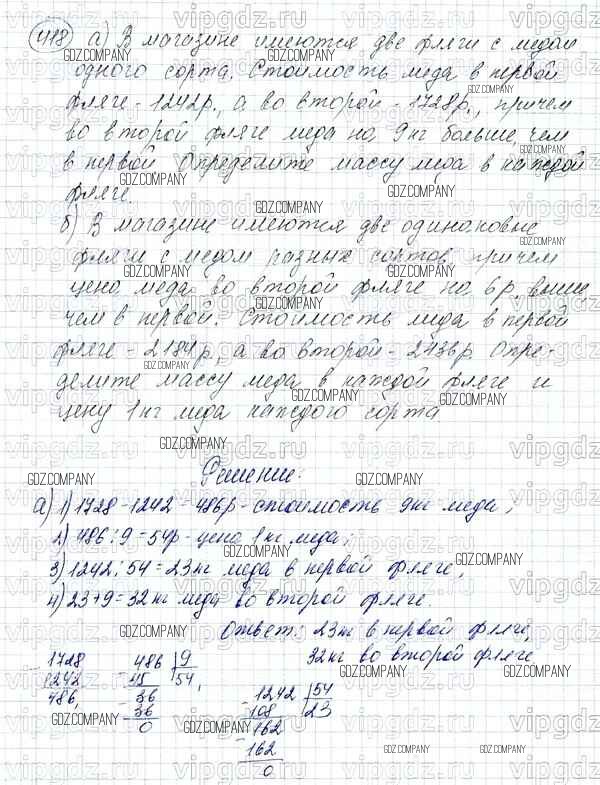 418 а) В магазине имеются две фляги с медом
одного сорта. Стоимость меда в первой
фляге - 1242р., а во второй - 1728р., причем
во второй фляге меда на 9кг больше, чем
в первой. Определите массу меда в каждой
фляге.
б) В магазине имеются две одинаковые
фляги с медом разных сортов, причем
цена меда во второй фляге на 6р выше,
чем в первой. Стоимость меда в первой
фляге - 2184р, а во второй - 2436р. Опре-
делите массу меда в каждой фляге и
цену 1кг меда каждого сорта.
Решение:
а) 1) 1728-1242=486р - стоимость 9кг меда;
2) 486:9=54р - цена 1кг меда;
3) 1242:54=23кг меда в первой фляге;
4) 23+9=32кг меда во второй фляге.
Ответ: 23кг в первой фляге,
32кг во второй фляге
1728 486 9
- 1242 - 45 54
486 36
- 36
0
1242 54
- 108 23
162
- 162
0
GDZ.COMPANY
vipgdz.ru